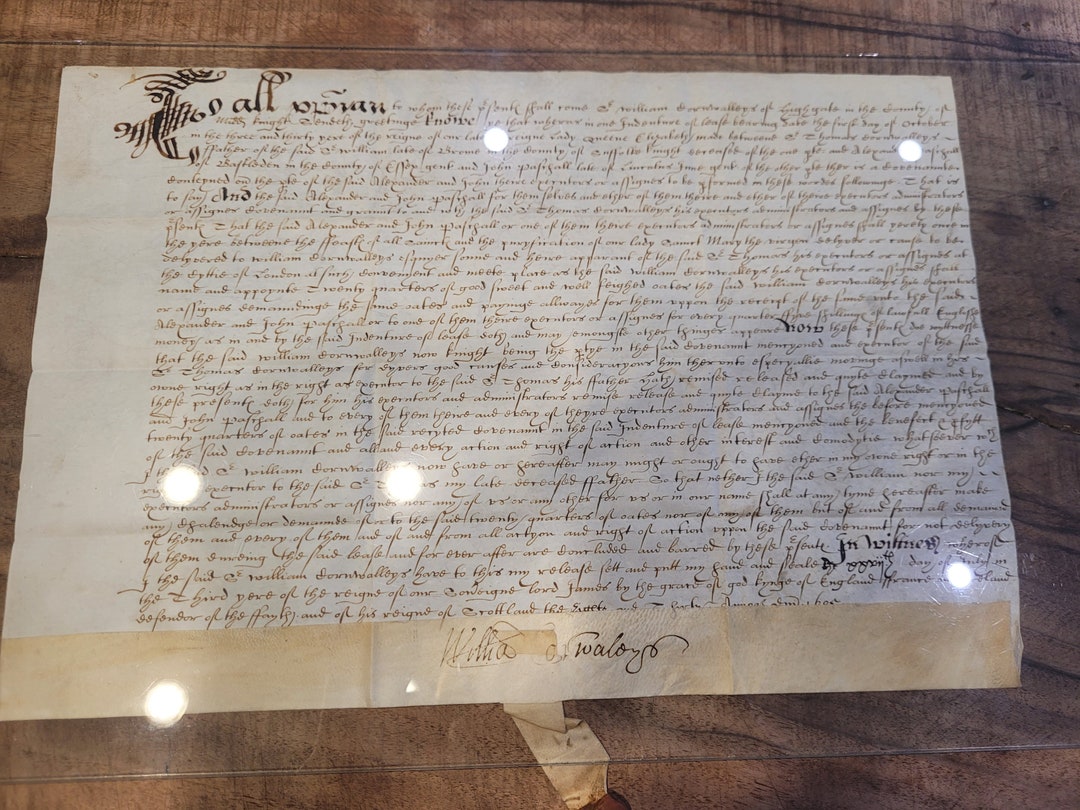 To all xpian to whom these psents shall come Sr William Cornwalleys of Highgate in the County of
Midd knight Sendeth greetinge knowe ye that wheras in one Indenture of lease bearing date the first day of October
in the three and thirty yere of the reigne of our late Sovereigne Lady Queene Elizabeth made betweene Sr Thomas Cornwalleys
ffather of the said Sr William late of Brome in the County of Suffolke knight deceased of the one pte and Alexander Paschall
of in the County of Essex gent and John Paschall late of Lincolns Inne gent of the other pte ther is a Covenaunte
Conteyned on the pte of the said Alexander and John there executors or assignes to be pformed in these wordes followinge That is
to say And the said Alexander and John Paschall for themselves and ether of them theire and ether of theire executors administrators
or assignes Covenaunt and graunt to and with the said Sr Thomas Cornwalleys his executors administrators and assignes by these
psents That the said Alexander and John Paschall or one of them there executors administrators or assignes shall yerely once in
the yere betweene the ffeast of all Saincts and the puryficacion of our lady Sainct Mary the virgyn delyver or cause to be
delyvered to William Cornwalleys esquyer sonne and heire apparant of the said Sr Thomas his executors or assignes at
the Cyttie of London at such Convenient and meete place as the said William Cornwalleys his executors or assignes shall
name and appoynte Twenty quarters of good sweet and well oates the said William Cornwalleys his executors
or assignes demaundinge the same oates and payinge allwayes for them uppon the receipt of the same unto the said
Alexander and John Paschall or to one of them theire executors or assignes for every quarter fyve shillings of lawfull Englishe
money as in and by the said Indenture of lease doth and may emongst other things appeare Now these psents doe witnesse
that the said William Cornwalleys now knight being the ptye in the said Covenant mencyoned and executor of the said
Sr Thomas Cornwalleys for dyvers good causes and consideracyons him therunto especyallie movinge aswell in his
owne right as in the right as executor to the said Sr Thomas his ffather hath remised released and quyte claymed and by
these presents doth for him his executors and administrators remise release and quyte clayme to the said Alexander Paschall
and John Paschall and to every of them theire and every of theyre executors administrators and assignes the before mencyoned
twenty quarters of oates in the said recyted Covenaunt in the said Indenture of lease mencyoned and the benefitt pfytt
of the said Covenant and all and every action and right of action and other interest and Comodytie whatsoever wch
I the said Sr William Cornwalleys now have or hereafter may might or ought to have ether in my owne right or in the
executor to the said Sr my late deceased ffather So that nether I the said Sr William nor my
executors administrators or assignes nor any of us or any other for us or in our name shall at any tyme hereafter make
any Chalendge or demaunde of or to the said twenty quarters of oates nor of any of them but of and from all demaund
of them and every of them and of and from all actyon and right of action uppon the said Covenaunt for not delyvery
of them during the said lease and for ever after are Concluded and barred by these psents In witnes wherof
I the said Sr William Cornwalleys have to this my release sett and putt my hand and seale day of in
the Third yere of the reigne of our Soveigne lord James by the grace of god kynge of England ffrance and Ireland
defendor of the ffayth and of his reigne of Scottland the and Anno 1605
Willia Cornwaleys